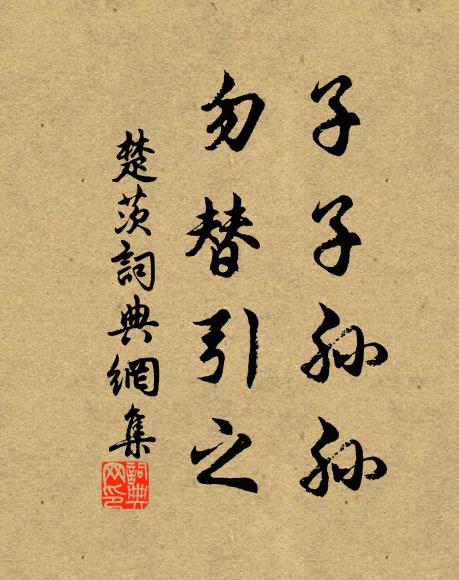 子子孙孙
勿替引之
楚茨詞典網集
詞典网印